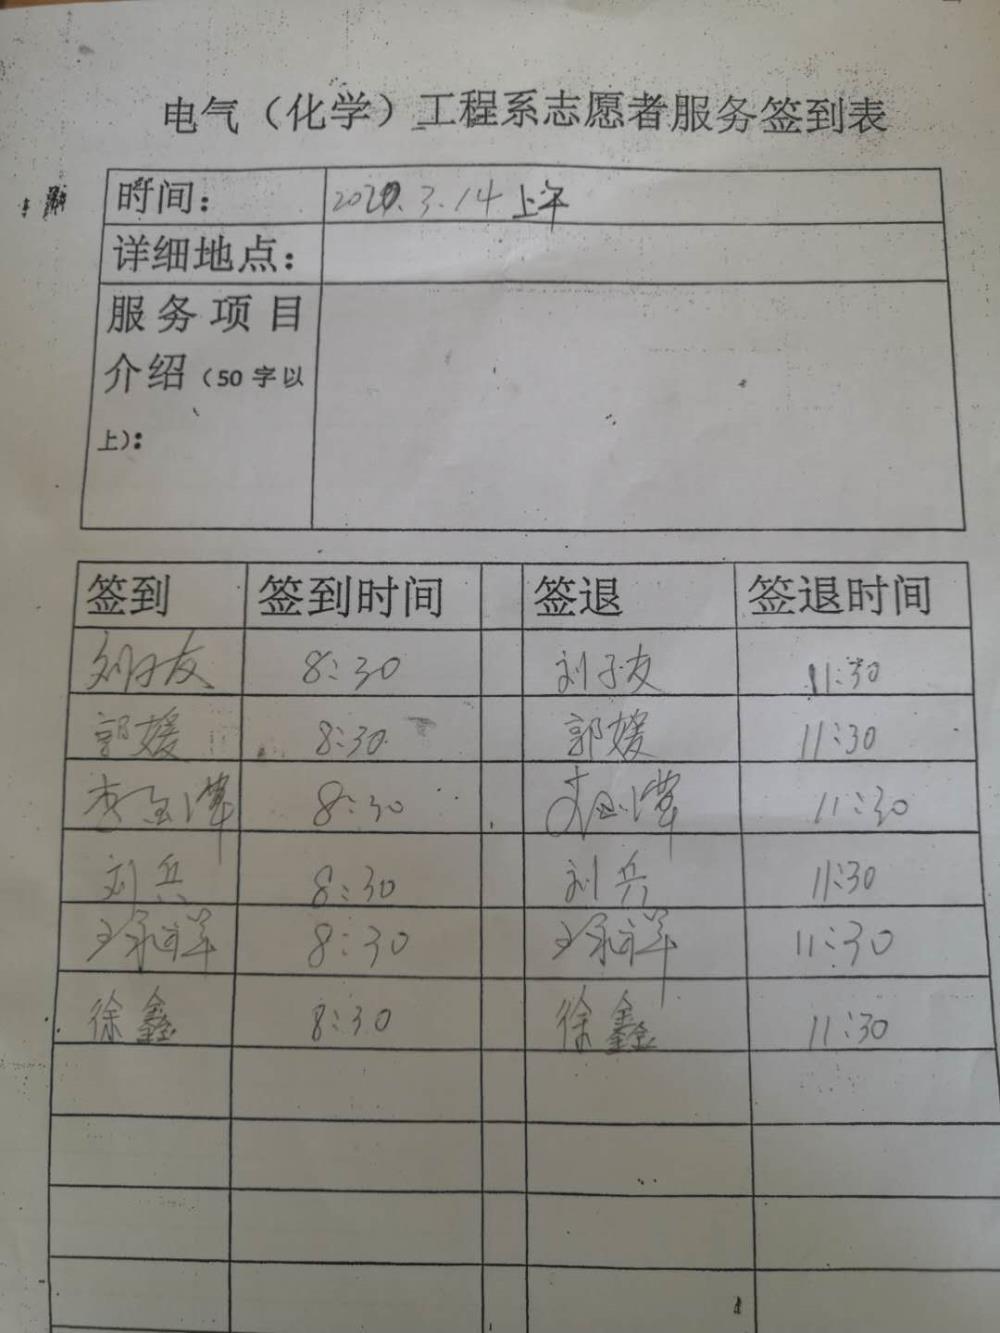 电气（化学）工程系志愿者服务签到表
时间： 2020.3.14 上午
详细地点：
服务项目
介绍（50字以
上）：
签到 签到时间 签退 签退时间
刘子友 8:30 刘子友 11:30
郭媛 8:30 郭媛 11:30
8:30 11:30
刘兵 8:30 刘兵 11:30
王承祥 8:30 王承祥 11:30
徐鑫 8:30 徐鑫 11:30